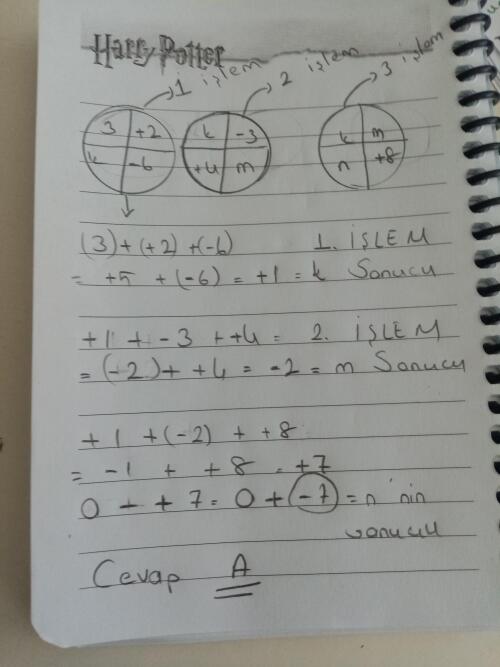 Harry Potter
1 işlem 2 işlem 3 işlem
3 +2 k -6
k -3 +4 m
k m n +8
(3)+(+2)+(-6) 1. İŞLEM
= +5 + (-6) = +1 = k Sonucu
+1 + -3 + +4 = 2. İŞLEM
= (-2)+ +4 = -2 = m Sonucu
+1 +(-2) + +8
= -1 + +8 = +7
0 - + 7 = 0 + (-7) = n nin
sonucu
Cevap A